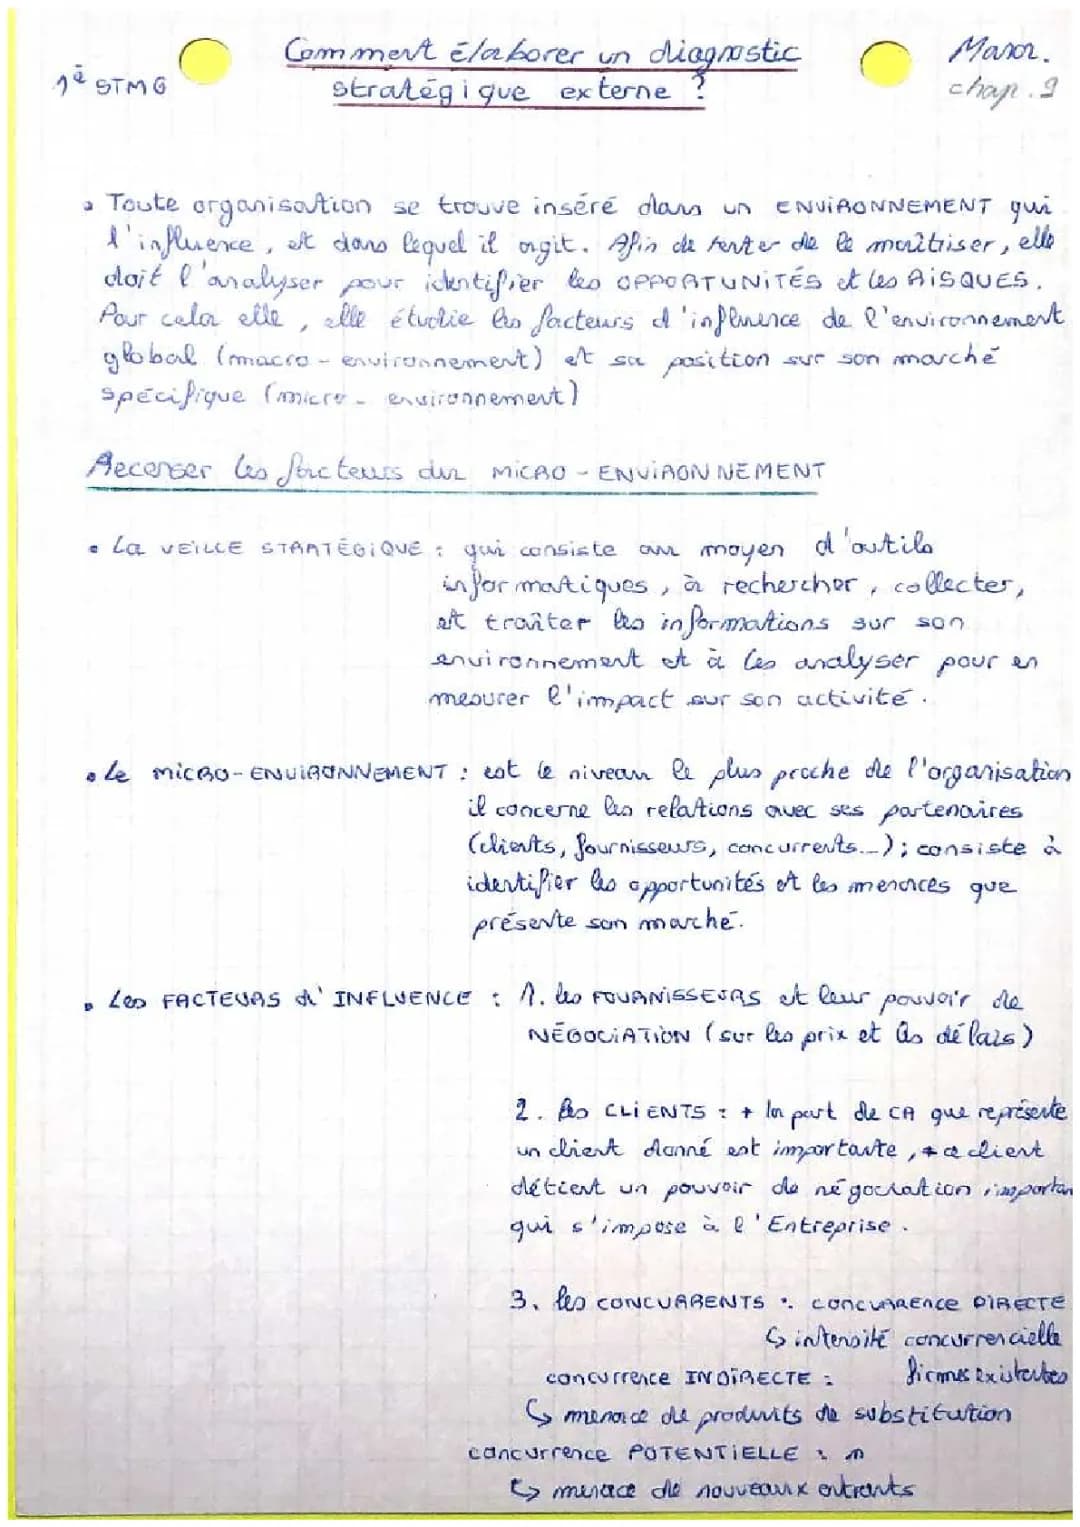 Comment élaborer un diagnostic
stratégique externe ?
1è STMG
chap. 9
Toute organisation se trouve inséré dans un ENVIRONNEMENT qui
l'influence, et dans lequel il agit. Afin de tenter de le maîtriser, elle
doit l'analyser pour identifier les OPPORTUNITÉS et les RISQUES.
Pour cela elle, elle étudie les facteurs d'influence de l'environnement
global (macro-environnement) et sa position sur son marché
spécifique (micro-environnement)
Recenser les facteurs du MICRO-ENVIRONNEMENT
• La VEILLE STRATÉGIQUE : qui consiste au moyen d'outils
informatiques, à rechercher, collecter,
et traiter les informations sur son
environnement et à les analyser pour en
mesurer l'impact sur son activité.
• Le MICRO-ENVIRONNEMENT : est le niveau le plus proche de l'organisation
il concerne les relations avec ses partenaires
(clients, fournisseurs, concurrents...); consiste à
identifier les opportunités et les menaces que
présente son marché.
• Les FACTEURS d'INFLUENCE : 1. les FOURNISSEURS et leur pouvoir de
NÉGOCIATION (sur les prix et les délais)
2. les CLIENTS : + la part de CA que représente
un client donné est importante, + ce client
détient un pouvoir de négociation importan
qui s'impose à l'Entreprise.
3. les CONCURRENTS : CONCURRENCE DIRECTE
↳ intensité concurrencielle
firmes existantes
concurrence INDIRECTE :
↳ menace de produits de substitution
concurrence POTENTIELLE :
↳ menace de nouveaux entrants